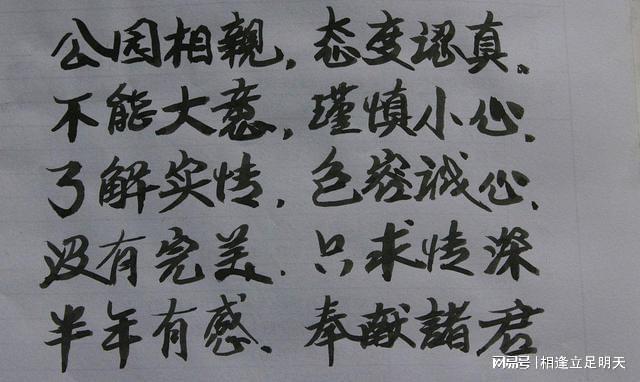 公园相親，态度認真。
不能大意，瑾慎小心，
了解实情，色容诚心，
没有完美．只求情深
半年有感．奉献諸君
网易号 | 相逢立足明天